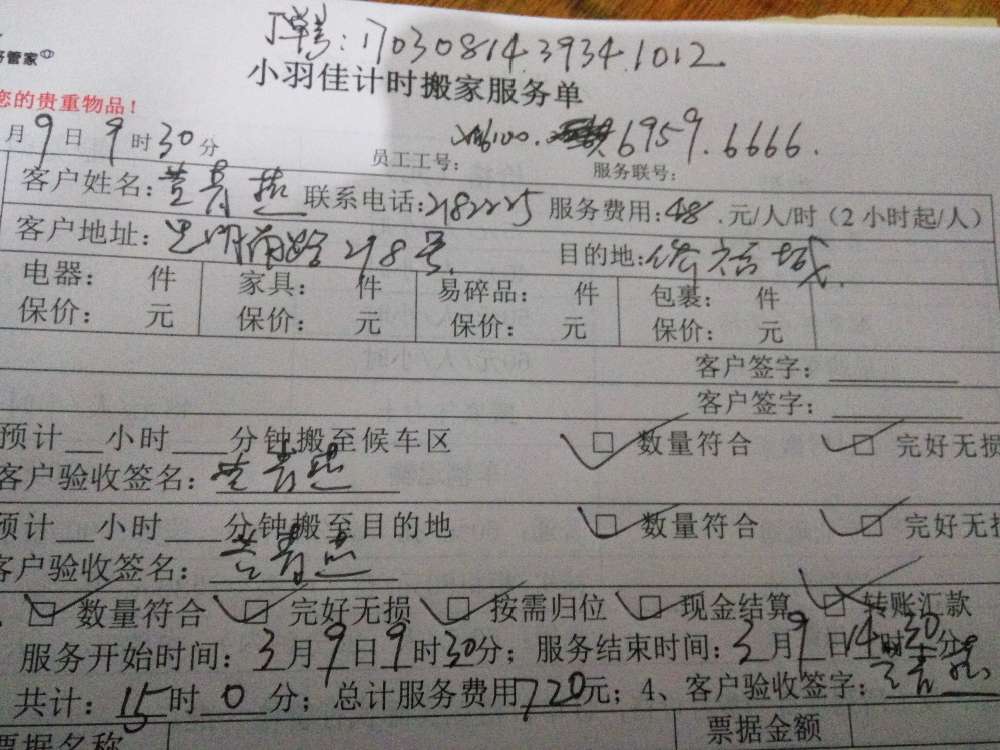 订单号:170308143934.1012
管家
小羽佳计时搬家服务单
您的贵重物品!
月9日9时30分 员工工号: 100. 服务联号: 6959.6666.
客户姓名: 联系电话:2182225 服务费用:48.元/人/时(2小时起/人)
客户地址:思明南路298号. 目的地:裕福城.
电器: 件 家具: 件 易碎品: 件 包裹: 件
保价: 元 保价: 元 保价: 元 保价: 元
客户签字:
客户签字:
预计__小时___分钟搬至候车区 □数量符合 □完好无损
客户验收签名:
预计__小时___分钟搬至目的地 □数量符合 □完好无损
客户验收签名:
□数量符合 □完好无损 □按需归位 □现金结算 □转账汇款
服务开始时间:3月9日9时30分;服务结束时间:3月9日14时30分
共计:15时0分;总计服务费用720元;4、客户验收签字:
票据名称 票据金额